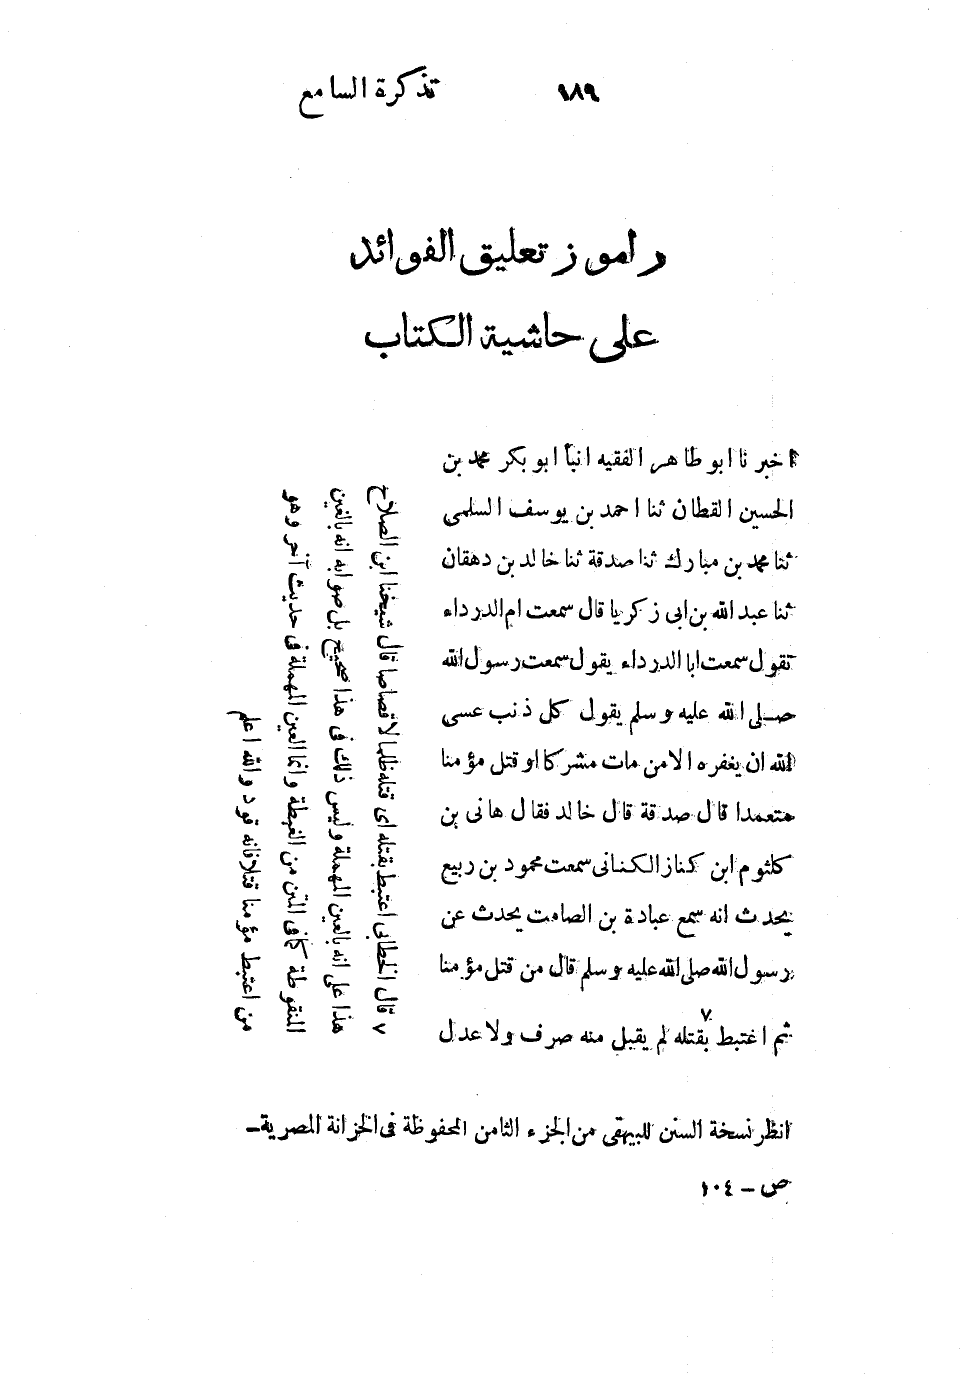 ١٨٩ تذكرة السامع
راموز تعليق الفوائد
على حاشية الكتاب
اخبرنا ابو طاهر الفقيه انبأ ابو بكر محمد بن
الحسين القطان ثنا احمد بن يوسف السلمى
ثنا محمد بن مبارك ثنا صدقة ثنا خالد بن دهقان
ثنا عبد الله بن ابى زكريا قال سمعت ام الدرداء
تقول سمعت ابا الدرداء يقول سمعت رسول الله
صلى الله عليه وسلم يقول كل ذنب عسى
الله ان يغفره الا من مات مشركا او قتل مؤمنا
متعمدا قال صدقة قال خالد فقال هانى بن
كلثوم ابن كناز الكنانى سمعت محمود بن ربيع
يحدث انه سمع عبادة بن الصامت يحدث عن
رسول الله صلى الله عليه وسلم قال من قتل مؤمنا
ثم اغتبط بقتله ٧ لم يقبل منه صرف ولا عدل
٧ قال الخطابى اعتبط بقتله اى قتله ظلما لا قصاصا قال شيخنا ابن الصلاح
هذا على انه بالعين المهملة وليس ذلك فى هذا صحيح بل صوابه انه بالغين
المنقوطة كما فى المتن من الغبطة وانما العين المهملة فى حديث آخر وهو
من اعتبط مؤمنا قتلا فانه قود والله اعلم
انظر نسخة السنن للبيهقى من الجزء الثامن المحفوظة فى الخزانة المصرية ـ
ص – ١٠٤